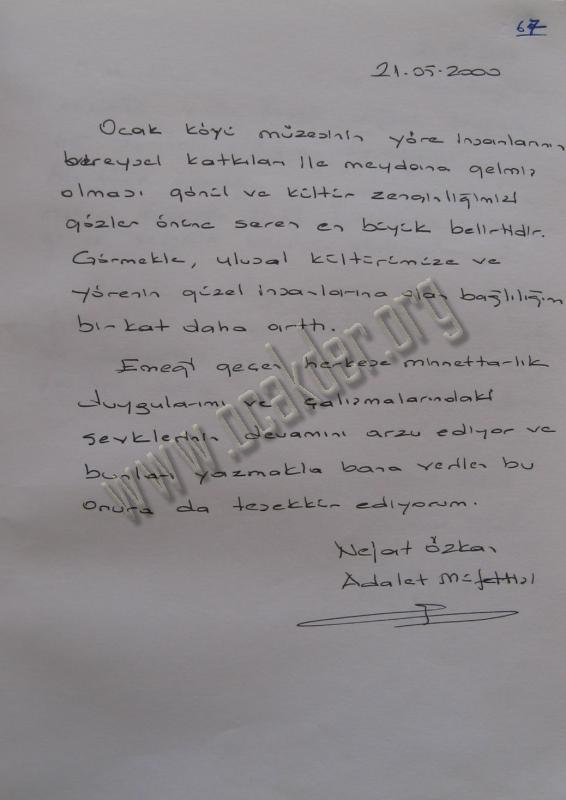 67
21.05.2000
Ocak köyü müzesinin yöre insanlarının
bireysel katkıları ile meydana gelmiş
olması gönül ve kültür zenginliğimizi
gözler önüne seren en büyük belirtidir.
Görmekle, ulusal kültürümüze ve
yörenin güzel insanlarına olan bağlılığım
bir kat daha arttı.
Emeği geçen herkese minnettarlık
duygularımı ve çalışmalarındaki
şevklerinin devamını arzu ediyor ve
bunları yazmakla bana verilen bu
onura da teşekkür ediyorum.
Nejat Özkan
Adalet Müfettişi
www.ocakder.org